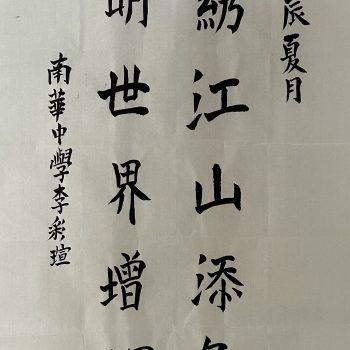 辰夏月
綉江山添
明世界增
南華中學李彩瑄